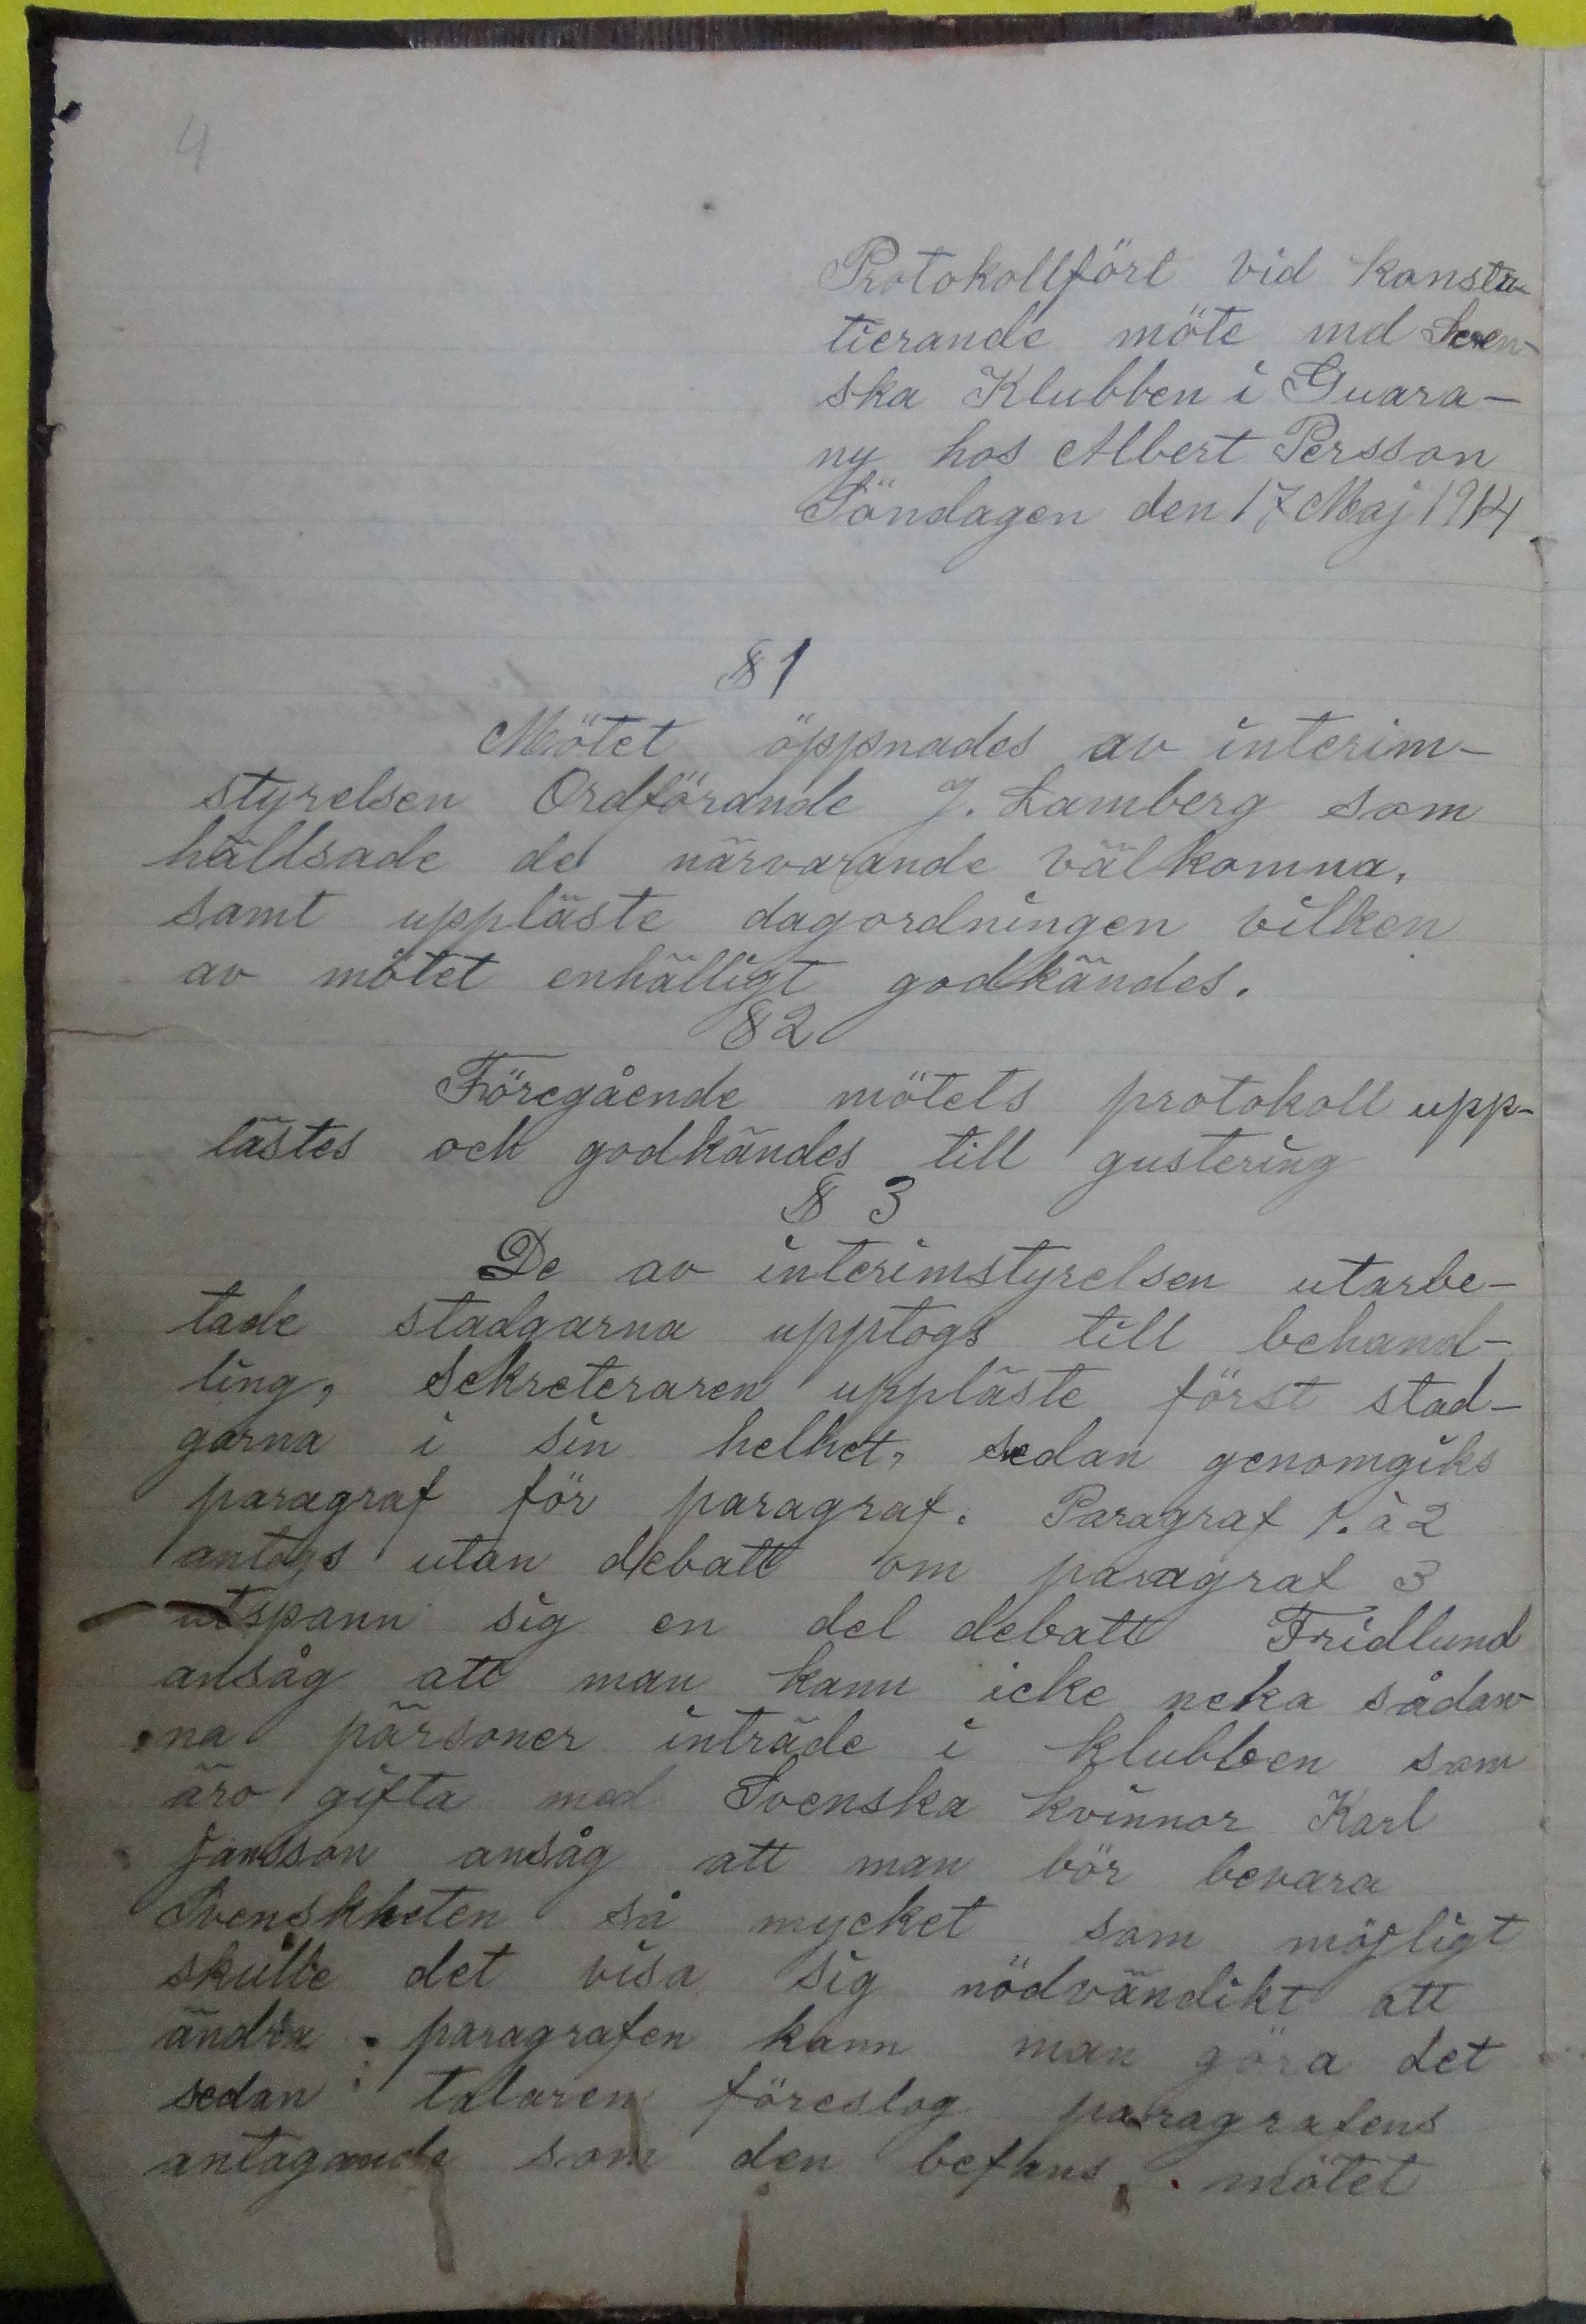 4
Protokollfört vid konstu-
tierande möte md Sven-
ska Klubben i Guara-
ny hos Albert Persson
Söndagen den 17 Maj 1914
§ 1
Mötet öppnades av interim-
styrelsen Ordförande J. Lamberg som
hällsade de närvarande välkomna,
samt uppläste dagordningen vilken
av mötet enhälligt godkändes.
§ 2
Föregående mötets protokoll upp-
lästes och godkändes till gustering
§ 3
De av interimstyrelsen utarbe-
tade stadgarna upptogs till behand-
ling, Sekreteraren uppläste först stad-
garna i sin helhet, sedan genomgiks
paragraf för paragraf. Paragraf 1. à 2
antogs utan debatt om paragraf 3
utspann sig en del debatt Fridlund
ansåg att man kann icke neka sådan-
na pärsoner inträde i klubben som
äro gifta med Svenska kvinnor Karl
Jansson ansåg att man bör bevara
Svenskheten så mycket som möjligt
skulle det visa sig nödvändikt att
ändra paragrafen kann man göra det
sedan talaren föreslog paragrafens
antagande som den befans, mötet